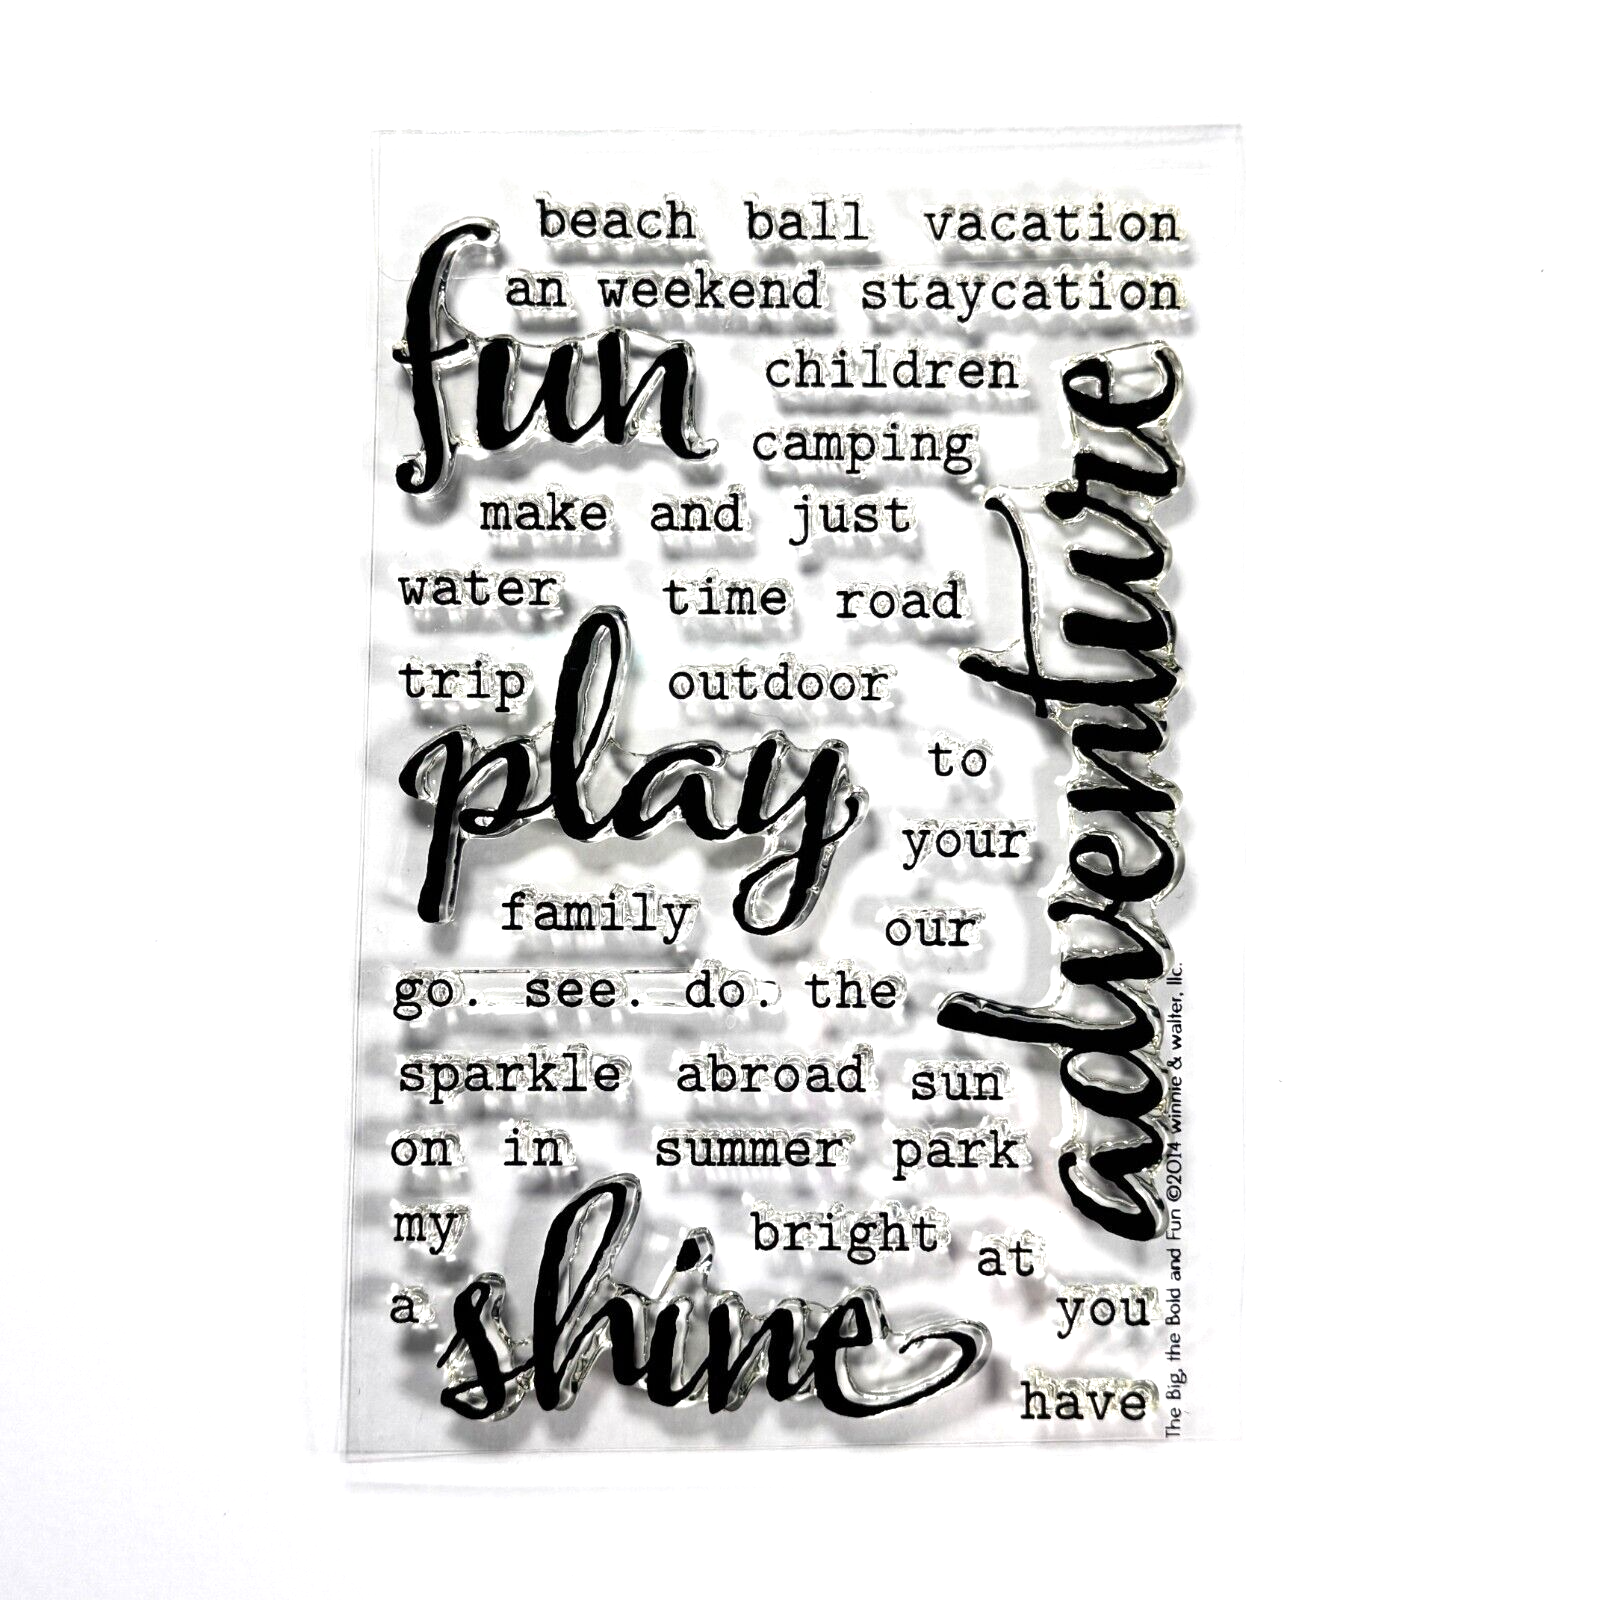 beach ball vacation
an weekend staycation
fun
children
camping
adventure
make and just
water time road
trip outdoor
play
to
your
family our
go. see. do. the
sparkle abroad sun
on in summer park
my bright at
a shine you
have
The Big, the Bold and Fun ©2014 winnie & walter, llc.